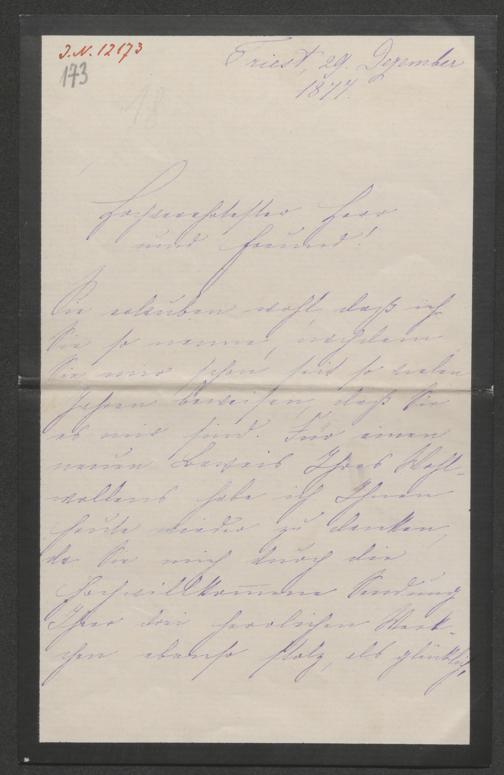 J.N. 12173
173
18
Triest, 29. Dezember
1877.
Hochverehrtester Herr
und Freund!
Sie erlauben wohl daß ich
Sie so nenne, nachdem
Sie mir schon seit so vielen
Jahren beweisen, daß Sie
es mir sind. Für einen
neuen Beweis Ihres Wohl-
wollens habe ich Ihnen
heute wieder zu danken,
da Sie mich durch die
hochwillkom̅ene Sendung
Ihrer drei herrlichen Werk-
chen ebenso stolz, als glücklich,